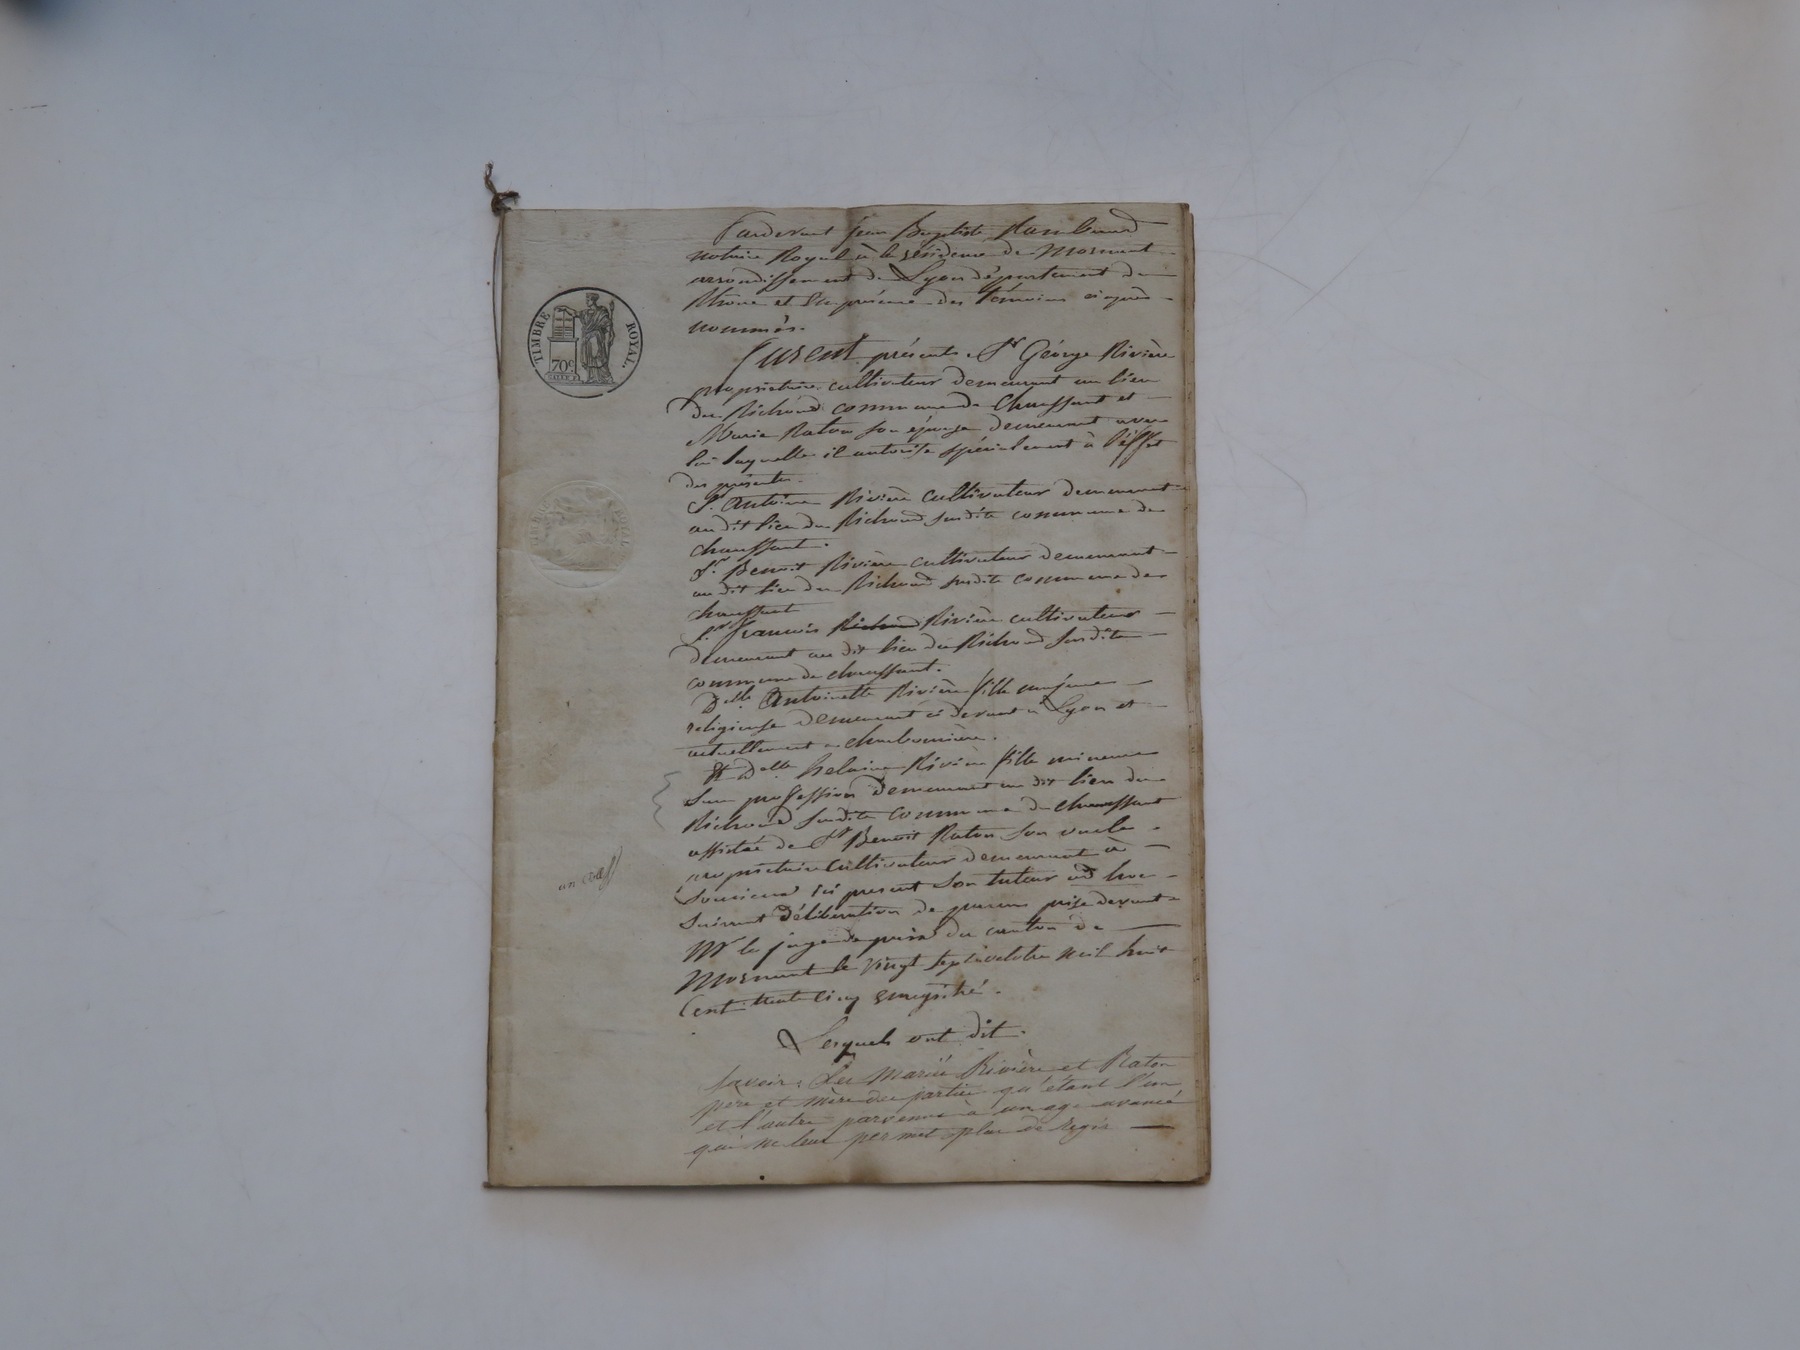 TIMBRE ROYAL
70c
Pardevant Jean Baptiste Rambaud
notaire Royal à la résidence de Mornant
arrondissement de Lyon département du
Rhône et en présence des témoins ci après
nommés.
Furent présents Sr George Rivière
propriétaire cultivateur demeurant au lieu
du Richoud commune de Chaussant et
Marie Raton son épouse demeurant avec
lui laquelle il autorise spécialement à l'effet
des présentes.
S. Antoine Rivière cultivateur demeurant
au dit lieu du Richoud susdite commune de
chaussant.
Sr Benoit Rivière cultivateur demeurant
au dit lieu du Richoud susdite commune de
chaussant
Sr François Richoud Rivière cultivateur
demeurant au dit lieu du Richoud susdite
commune de chaussant.
Delle Antoinette Rivière fille majeure
religieuse demeurant ci devant à Lyon et
actuellement à charbonnière.
Et Delle Rivière fille mineure
sans profession demeurant au dit lieu du
Richoud susdite commune de chaussant
assistée de Sr Benoit Raton son oncle
propriétaire cultivateur demeurant à
ici present son tuteur ad hoc
suivant délibération de parens prise devant
Mr le juge de paix du canton de
Mornant le vingt sept octobre mil huit
cent trente cinq enregistré.
Lesquels ont dit.
Savoir: Les Mariés Rivière et Raton
père et mère des parties qu'étant l'un
et l'autre parvenus à un age avancé
qui ne leur permet plus de régir